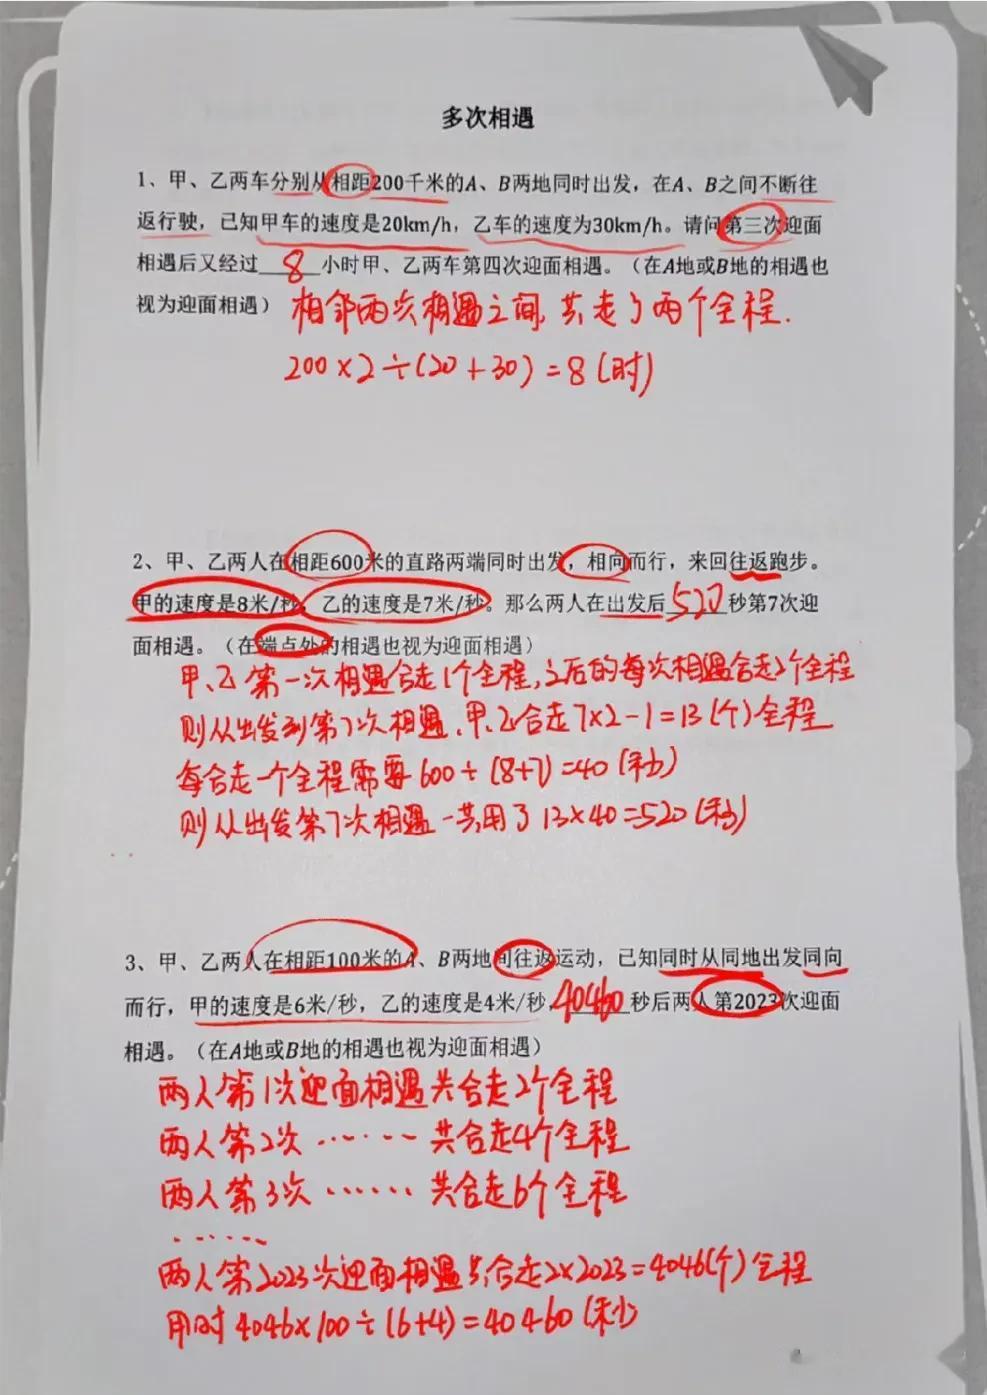 多次相遇
1、甲、乙两车分别从相距200千米的A、B两地同时出发，在A、B之间不断往
返行驶，已知甲车的速度是20km/h，乙车的速度为30km/h。请问第三次迎面
相遇后又经过 8 小时甲、乙两车第四次迎面相遇。（在A地或B地的相遇也
视为迎面相遇）
相邻两次相遇之间，共走了两个全程.
200×2÷(20+30)=8(时)
2、甲、乙两人在相距600米的直路两端同时出发，相向而行，来回往返跑步。
甲的速度是8米/秒，乙的速度是7米/秒。那么两人在出发后 520 秒第7次迎
面相遇。（在端点处的相遇也视为迎面相遇）
甲、乙第一次相遇合走1个全程，之后的每次相遇合走2个全程
则从出发到第7次相遇，甲、乙合走7×2-1=13(个)全程
每合走一个全程需要600÷(8+7)=40(秒)
则从出发第7次相遇一共用了13×40=520(秒)
3、甲、乙两人在相距100米的A、B两地间往返运动，已知同时从同地出发同向
而行，甲的速度是6米/秒，乙的速度是4米/秒，40460秒后两人第2023次迎面
相遇。（在A地或B地的相遇也视为迎面相遇）
两人第1次迎面相遇共合走2个全程
两人第2次······共合走4个全程
两人第3次······共合走6个全程
······
两人第2023次迎面相遇共合走2×2023=4046(个)全程
用时4046×100÷(6+4)=40460(秒)